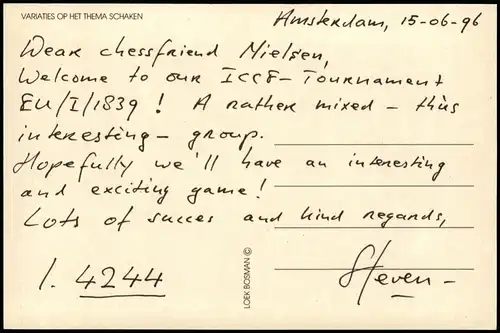 VARIATIES OP HET THEMA SCHAKEN
Amsterdam, 15-06-96
Dear chessfriend Nielsen,
Welcome to our ICCF-Tournament
EU/I/1839! A rather mixed - thus
interesting - group.
Hopefully we'll have an interesting
and exciting game!
Lots of succes and kind regards,
1. 4244
Steven
LOEK BOSMAN ©